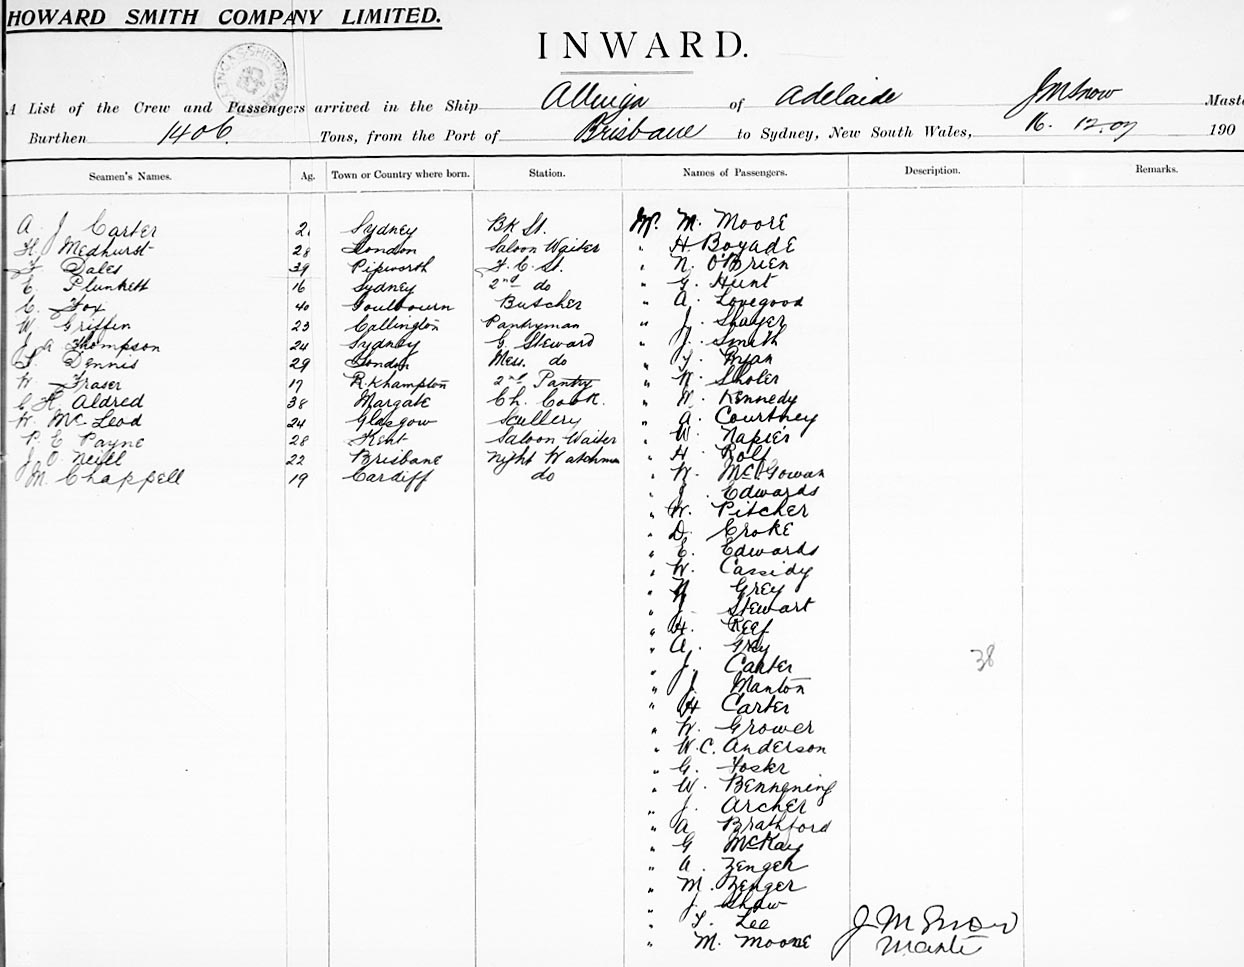 HOWARD SMITH COMPANY LIMITED.
INWARD.
A List of the Crew and Passengers arrived in the Ship Allinga of Adelaide J M Snow Maste
Burthen 1406. Tons, from the Port of Brisbane to Sydney, New South Wales, 16. 12.07 190
Seamen's Names. Ag. Town or Country where born. Station. Names of Passengers. Description. Remarks.
A. J Carter 21 Sydney Bk St. Mr. M. Moore
H. Medhurst 28 London Saloon Waiter " H. Boyade
F Dales 39 F. C. St. " N. O'Brien
E. Plunkett 16 Sydney 2nd do " G. Hunt
C. Fox 40 Goulbourn Butcher " A. Lovegood
W Griffin 23 Callington Pantryman " J.
J A Thompson 24 Sydney G. Steward " J. Smith
Dennis 29 London Mess. do " Ryan
W Fraser 17 R.khampton 2nd Pantry " W. Sholer
C H. Aldred 38 Margate Ch. Cook. " W. Kennedy
W. McLeod 24 Glasgow Scullery " A. Courtney
P. E Payne 28 Kent Saloon Waiter " W. Napier
J. O'Neill 22 Brisbane Night Watchman " H. Rolf
M. Chappell 19 Cardiff do " W. McGowan
" J. Edwards
" W. Pitcher
" D. Croke
" E. Edwards
" W. Cassidy
" N Grey
" J. Stewart
" H. Keef
" A. Grey
" J. Carter
38
" J. Manton
" H Carter
" W. Grower
" W.C. Anderson
" G. Fosker
" W. Bennening
" J. Archer
" A Brathford
" G McKay
" A. Zenger
" M. Zenger
" J. Shaw
" T. Lee J M Snow
" M. Moore Master